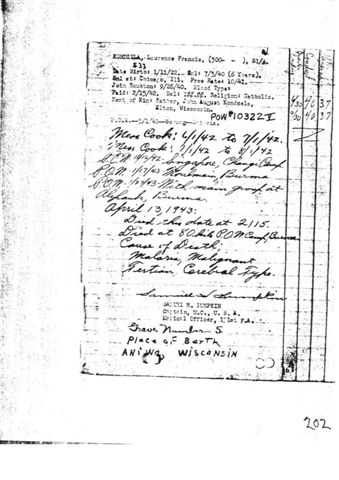 Lourence Francis, (300- - ), S1/c.
Date Birth: 1/11/22. Enl: 7/3/40 (6 Years).
Enl at: Chicago, Ill. Pres Rate: 10/41.
Join Houston: 9/28/40. Blood Type:
Paid: 2/15/42. Religion: Catholic.
Next of Kin: Father, John August Kondzela,
Wisconsin.
POW #10322-I
P.O.W.
Mess Cook: 4/1/42 to 7/1/42.
Mess Cook: 7/1/42 to 8/1/42
P.O.W. Singapore, Changi Camp
P.O.W. 1/17/43 Moulmein, Burma
P.O.W. With main group at
Burma
April 13, 1943:
Died this date at 2115
Died at 80 Kilo P.O.W. Camp, Burma
Cause of Death;
Malaria, Malignant
Tertian, Cerebral Type.
SAMUEL H. LUMPKIN
Captain, M.C., U. S. A.
Medical Officer, 131st F.A.
Grave Number 5
Place of Berth
WISCONSIN
202